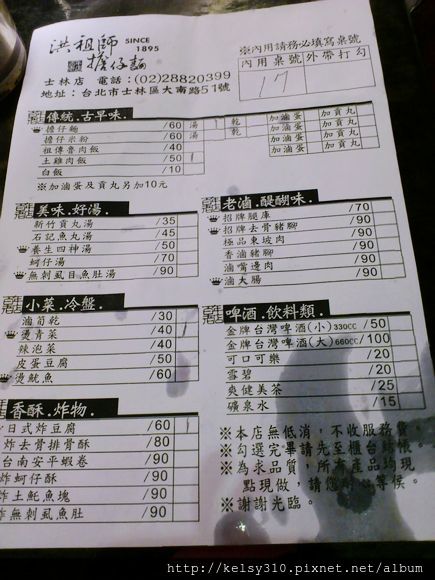 洪祖師
SINCE
1895
擔仔麵
士林店 電話:(02)28820399
地址:台北市士林區大南路51號
※內用請務必填寫桌號
內用桌號 外帶打勾
17
傳統.古早味.
擔仔麵 /60 湯 乾 加滷蛋 加貢丸
擔仔米粉 /60 湯 乾 加滷蛋 加貢丸
祖傳魯肉飯 /40 加滷蛋 加貢丸
土雞肉飯 /50 加滷蛋 加貢丸
白飯 /10
※加滷蛋及貢丸另加10元
美味.好湯.
新竹貢丸湯 /35
石記魚丸湯 /45
養生四神湯 /50
蚵仔湯 /70
無刺虱目魚肚湯 /90
老滷.醍醐味.
招牌腿庫 /70
招牌去骨豬腳 /90
極品東坡肉 /90
香滷豬腳 /90
滷嘴邊肉 /90
滷大腸 /90
小菜.冷盤.
滷筍乾 /30
燙青菜 /40
辣泡菜 /40
皮蛋豆腐 /50
燙魷魚 /60
啤酒.飲料類.
金牌台灣啤酒(小)330CC /50
金牌台灣啤酒(大)660CC /100
可口可樂 /20
雪碧 /20
爽健美茶 /25
礦泉水 /15
香酥.炸物.
日式炸豆腐 /60
炸去骨排骨酥 /80
台南安平蝦卷 /90
炸蚵仔酥 /90
炸土魠魚塊 /90
炸無刺虱魚肚 /90
※本店無低消,不收服務費。
※勾選完畢請先至櫃台結帳。
※為求品質,所有產品均現
點現做,請您耐心等候。
※謝謝光臨。
http://kelsy310.pixnet.net/album